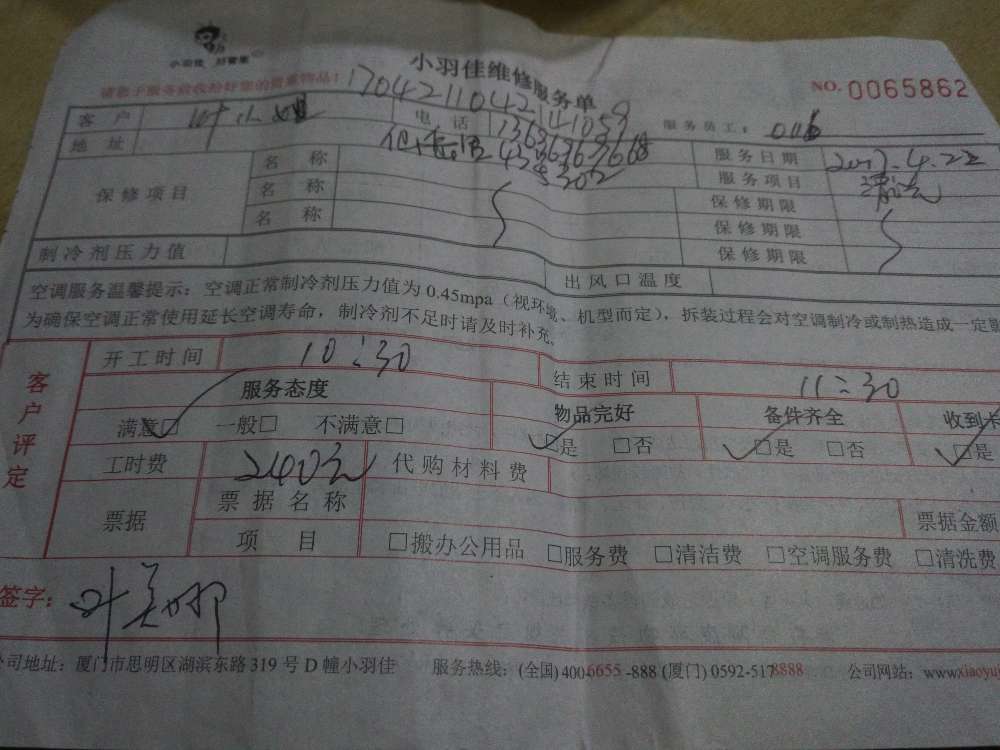 小羽佳 好管家
小羽佳维修服务单
请您于服务前收拾好您的贵重物品!
NO. 0065862
1704211042141059
客户 叶小姐 电话 服务员工: 006
地址 服务日期 2017.4.22
保修项目 名称 服务项目 清洗
名称 302 保修期限
名称 保修期限
保修期限
制冷剂压力值 出风口温度
空调服务温馨提示:空调正常制冷剂压力值为 0.45mpa(视环境、机型而定),拆装过程会对空调制冷或制热造成一定
为确保空调正常使用延长空调寿命,制冷剂不足时请及时补充。
客户评定
开工时间 10:30 结束时间 11:30
服务态度 物品完好 备件齐全 收到卡
满意□ 一般□ 不满意□ □是 □否 □是 □否 □是
工时费 240元 代购材料费
票据 票据名称 票据金额
项目 □搬办公用品 □服务费 □清洁费 □空调服务费 □清洗费
签字:
公司地址:厦门市思明区湖滨东路 319 号 D 幢小羽佳 服务热线:(全国) 400-6655-888 (厦门) 0592-5178888 公司网站:www.xiaoyu